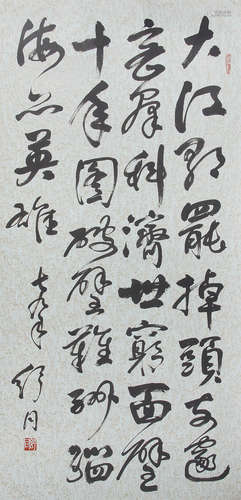 大江歌罷掉頭東邃
密羣科濟世窮面壁
十年圖破壁難酬蹈
海亦英雄
舒同